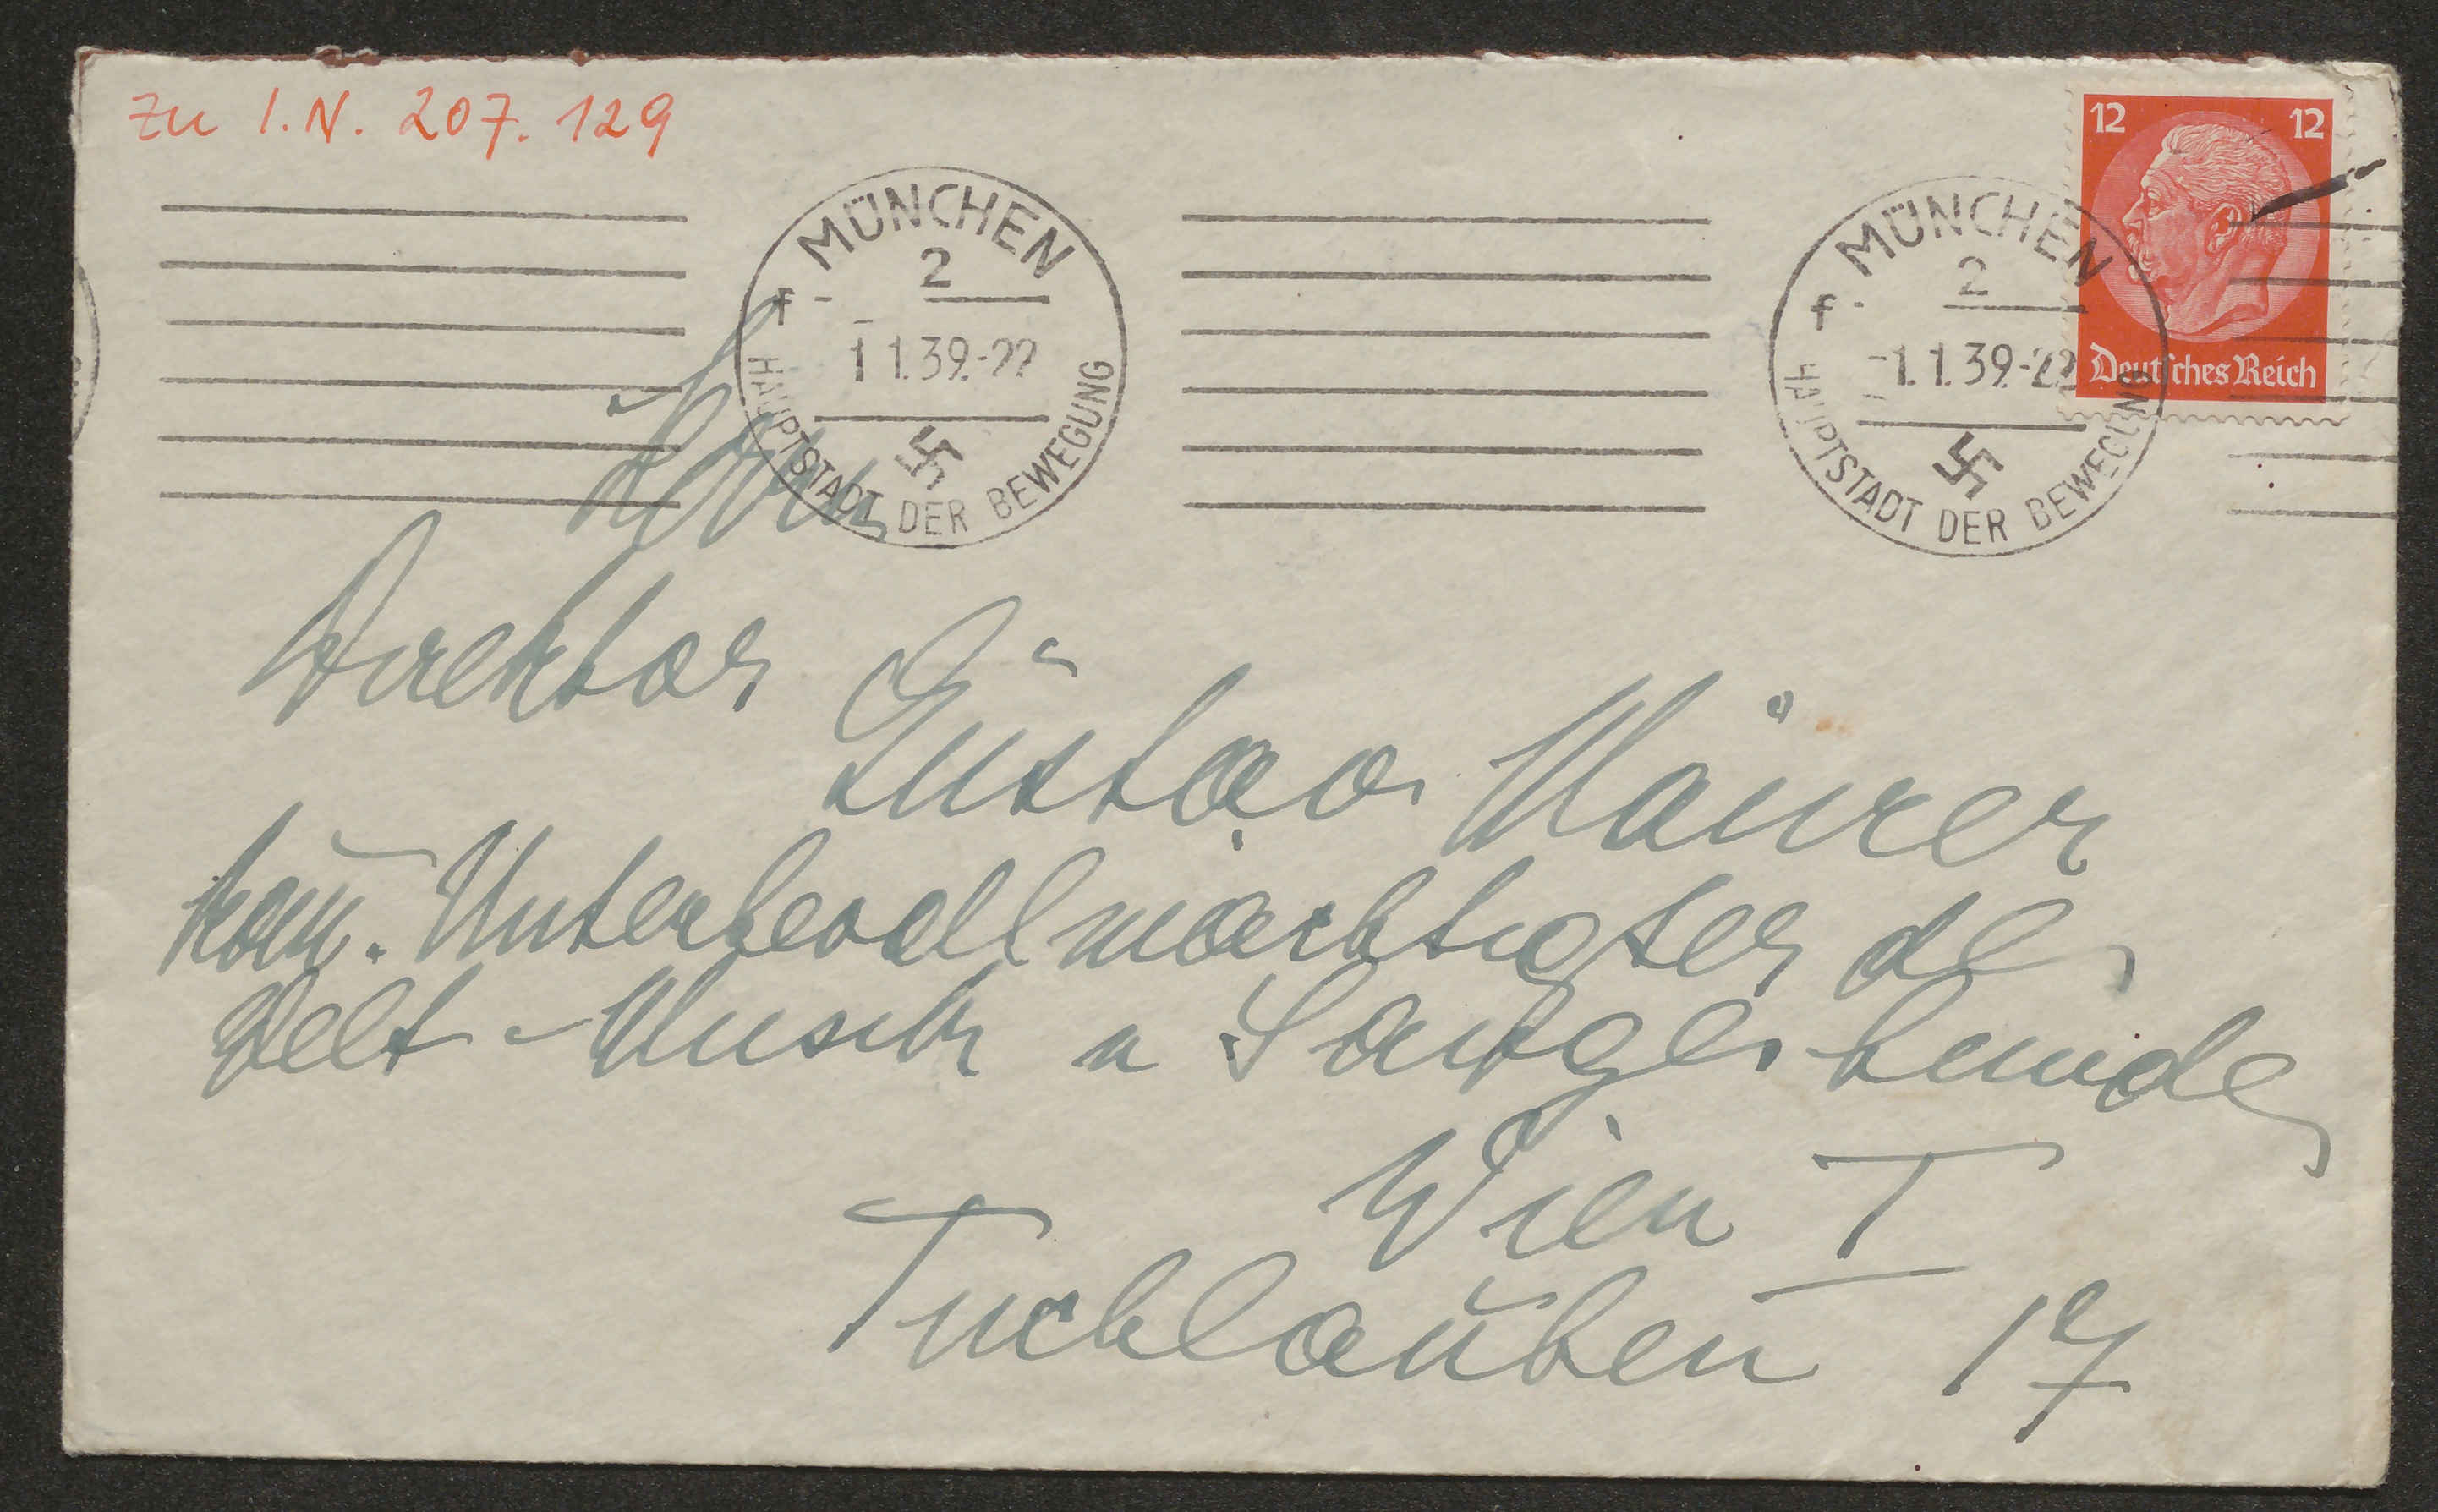 zu I.N. 207.129
12 12
Deutsches Reich
MÜNCHEN
2
f
1.1.39.-22
HAUPTSTADT DER BEWEGUNG
MÜNCHEN
2
f
-1.1.39.-22
HAUPTSTADT DER BEWEGUNG
Herrn
Direktor
Gustav Maurer
kom. Unterbevollmächtigter der
Welt-Musik u Sanges bundes
Wien I
Tuchlauben 17